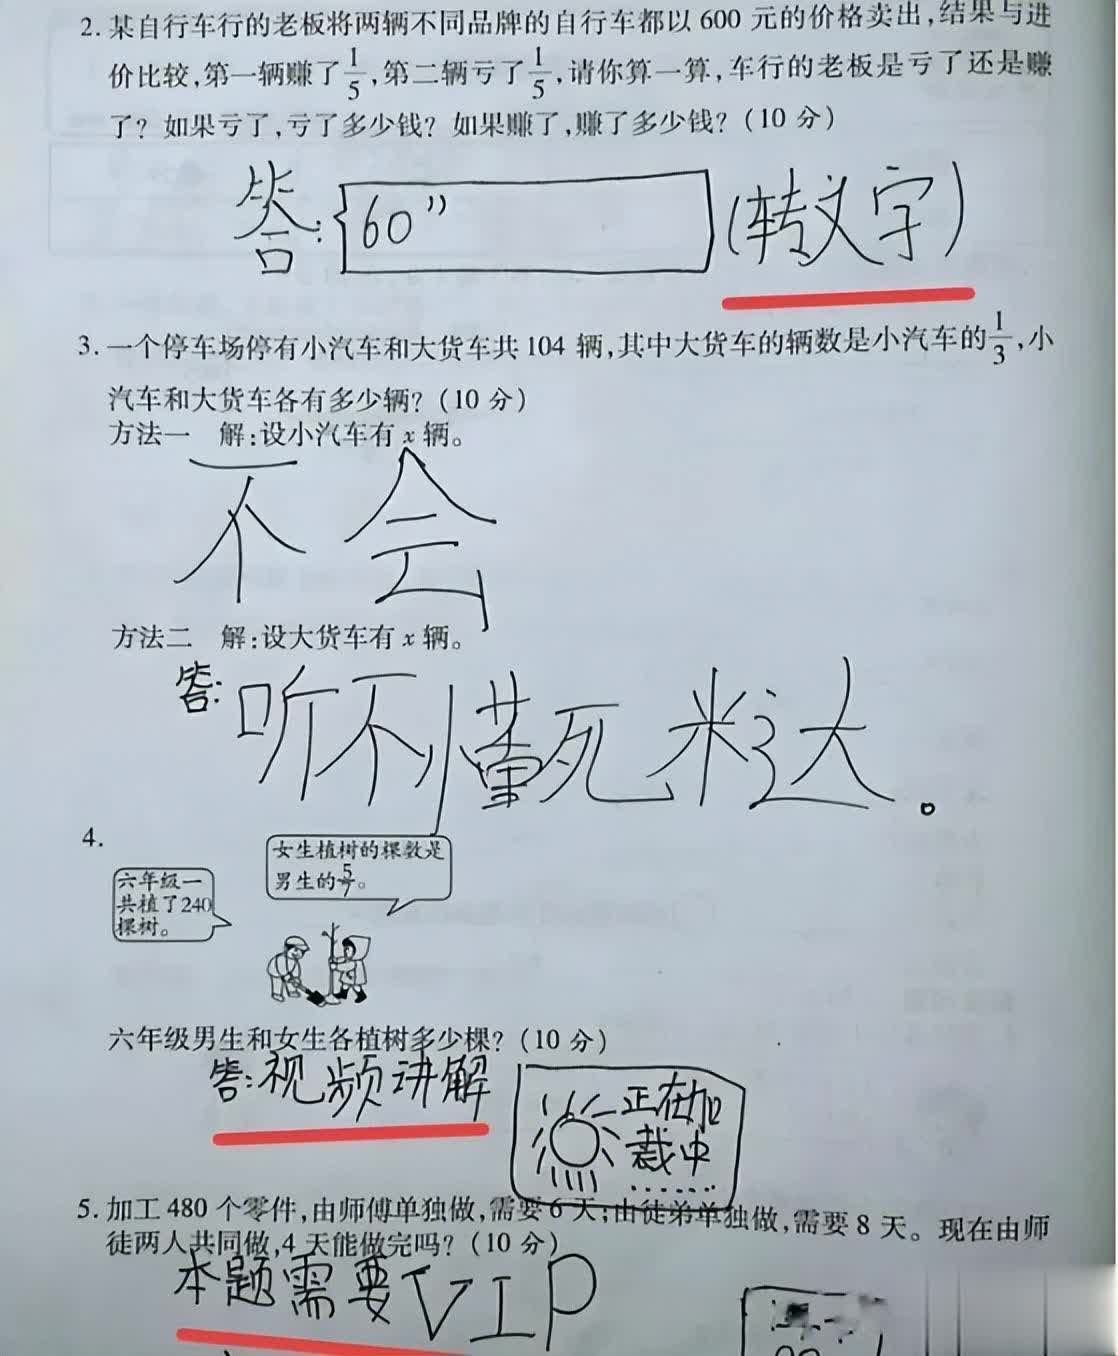 2. 某自行车行的老板将两辆不同品牌的自行车都以 600 元的价格卖出,结果与进
价比较,第一辆赚了1/5,第二辆亏了1/5,请你算一算,车行的老板是亏了还是赚
了? 如果亏了,亏了多少钱? 如果赚了,赚了多少钱? (10 分)
答: 60” (转文字)
3. 一个停车场停有小汽车和大货车共 104 辆,其中大货车的辆数是小汽车的1/3,小
汽车和大货车各有多少辆? (10 分)
方法一 解:设小汽车有 x 辆。
不会
方法二 解:设大货车有 x 辆。
答: 听不懂死迷达。
4.
女生植树的棵数是
男生的5/7。
六年级一
共植了240
棵树。
六年级男生和女生各植树多少棵? (10 分)
答: 视频讲解
正在加
裁中
......
5. 加工 480 个零件,由师傅单独做,需要 6 天;由徒弟单独做,需要 8 天。现在由师
徒两人共同做,4 天能做完吗? (10 分)
本题需要VIP